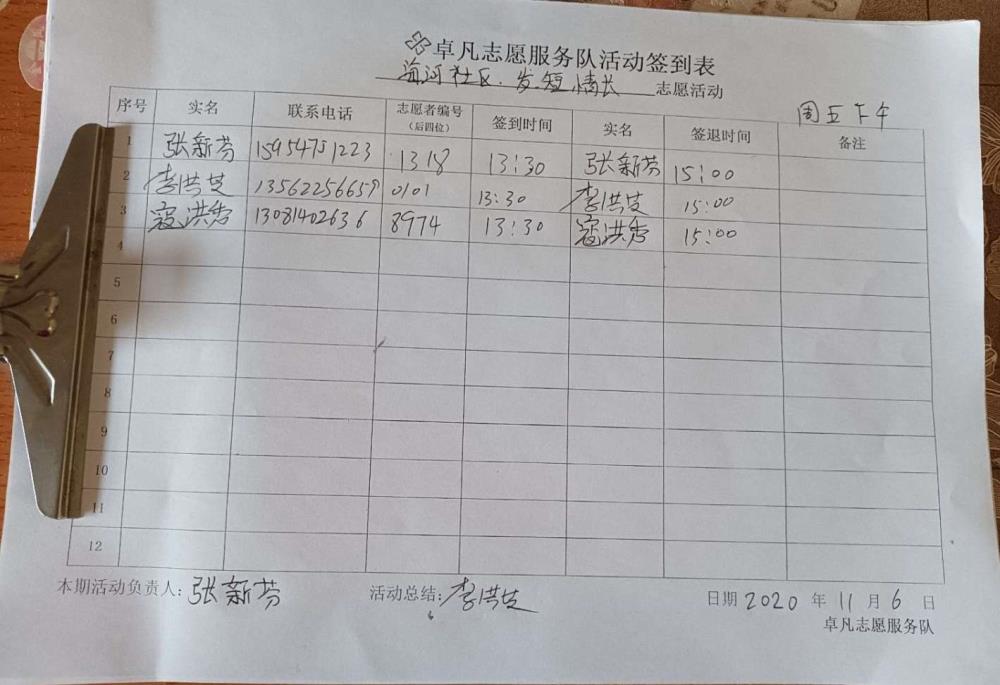 卓凡志愿服务队活动签到表
海河社区.发短情长 志愿活动
周五下午
序号 实名 联系电话 志愿者编号（后四位） 签到时间 实名 签退时间 备注
1 张新芬 15954751223 1318 13:30 张新芬 15:00
2 李洪芝 13562256659 0101 13:30 李洪芝 15:00
3 寇洪秀 13081402636 8974 13:30 寇洪秀 15:00
4
5
6
7
8
9
10
11
12
本期活动负责人：张新芬 活动总结：李洪芝 日期 2020 年 11 月 6 日
卓凡志愿服务队